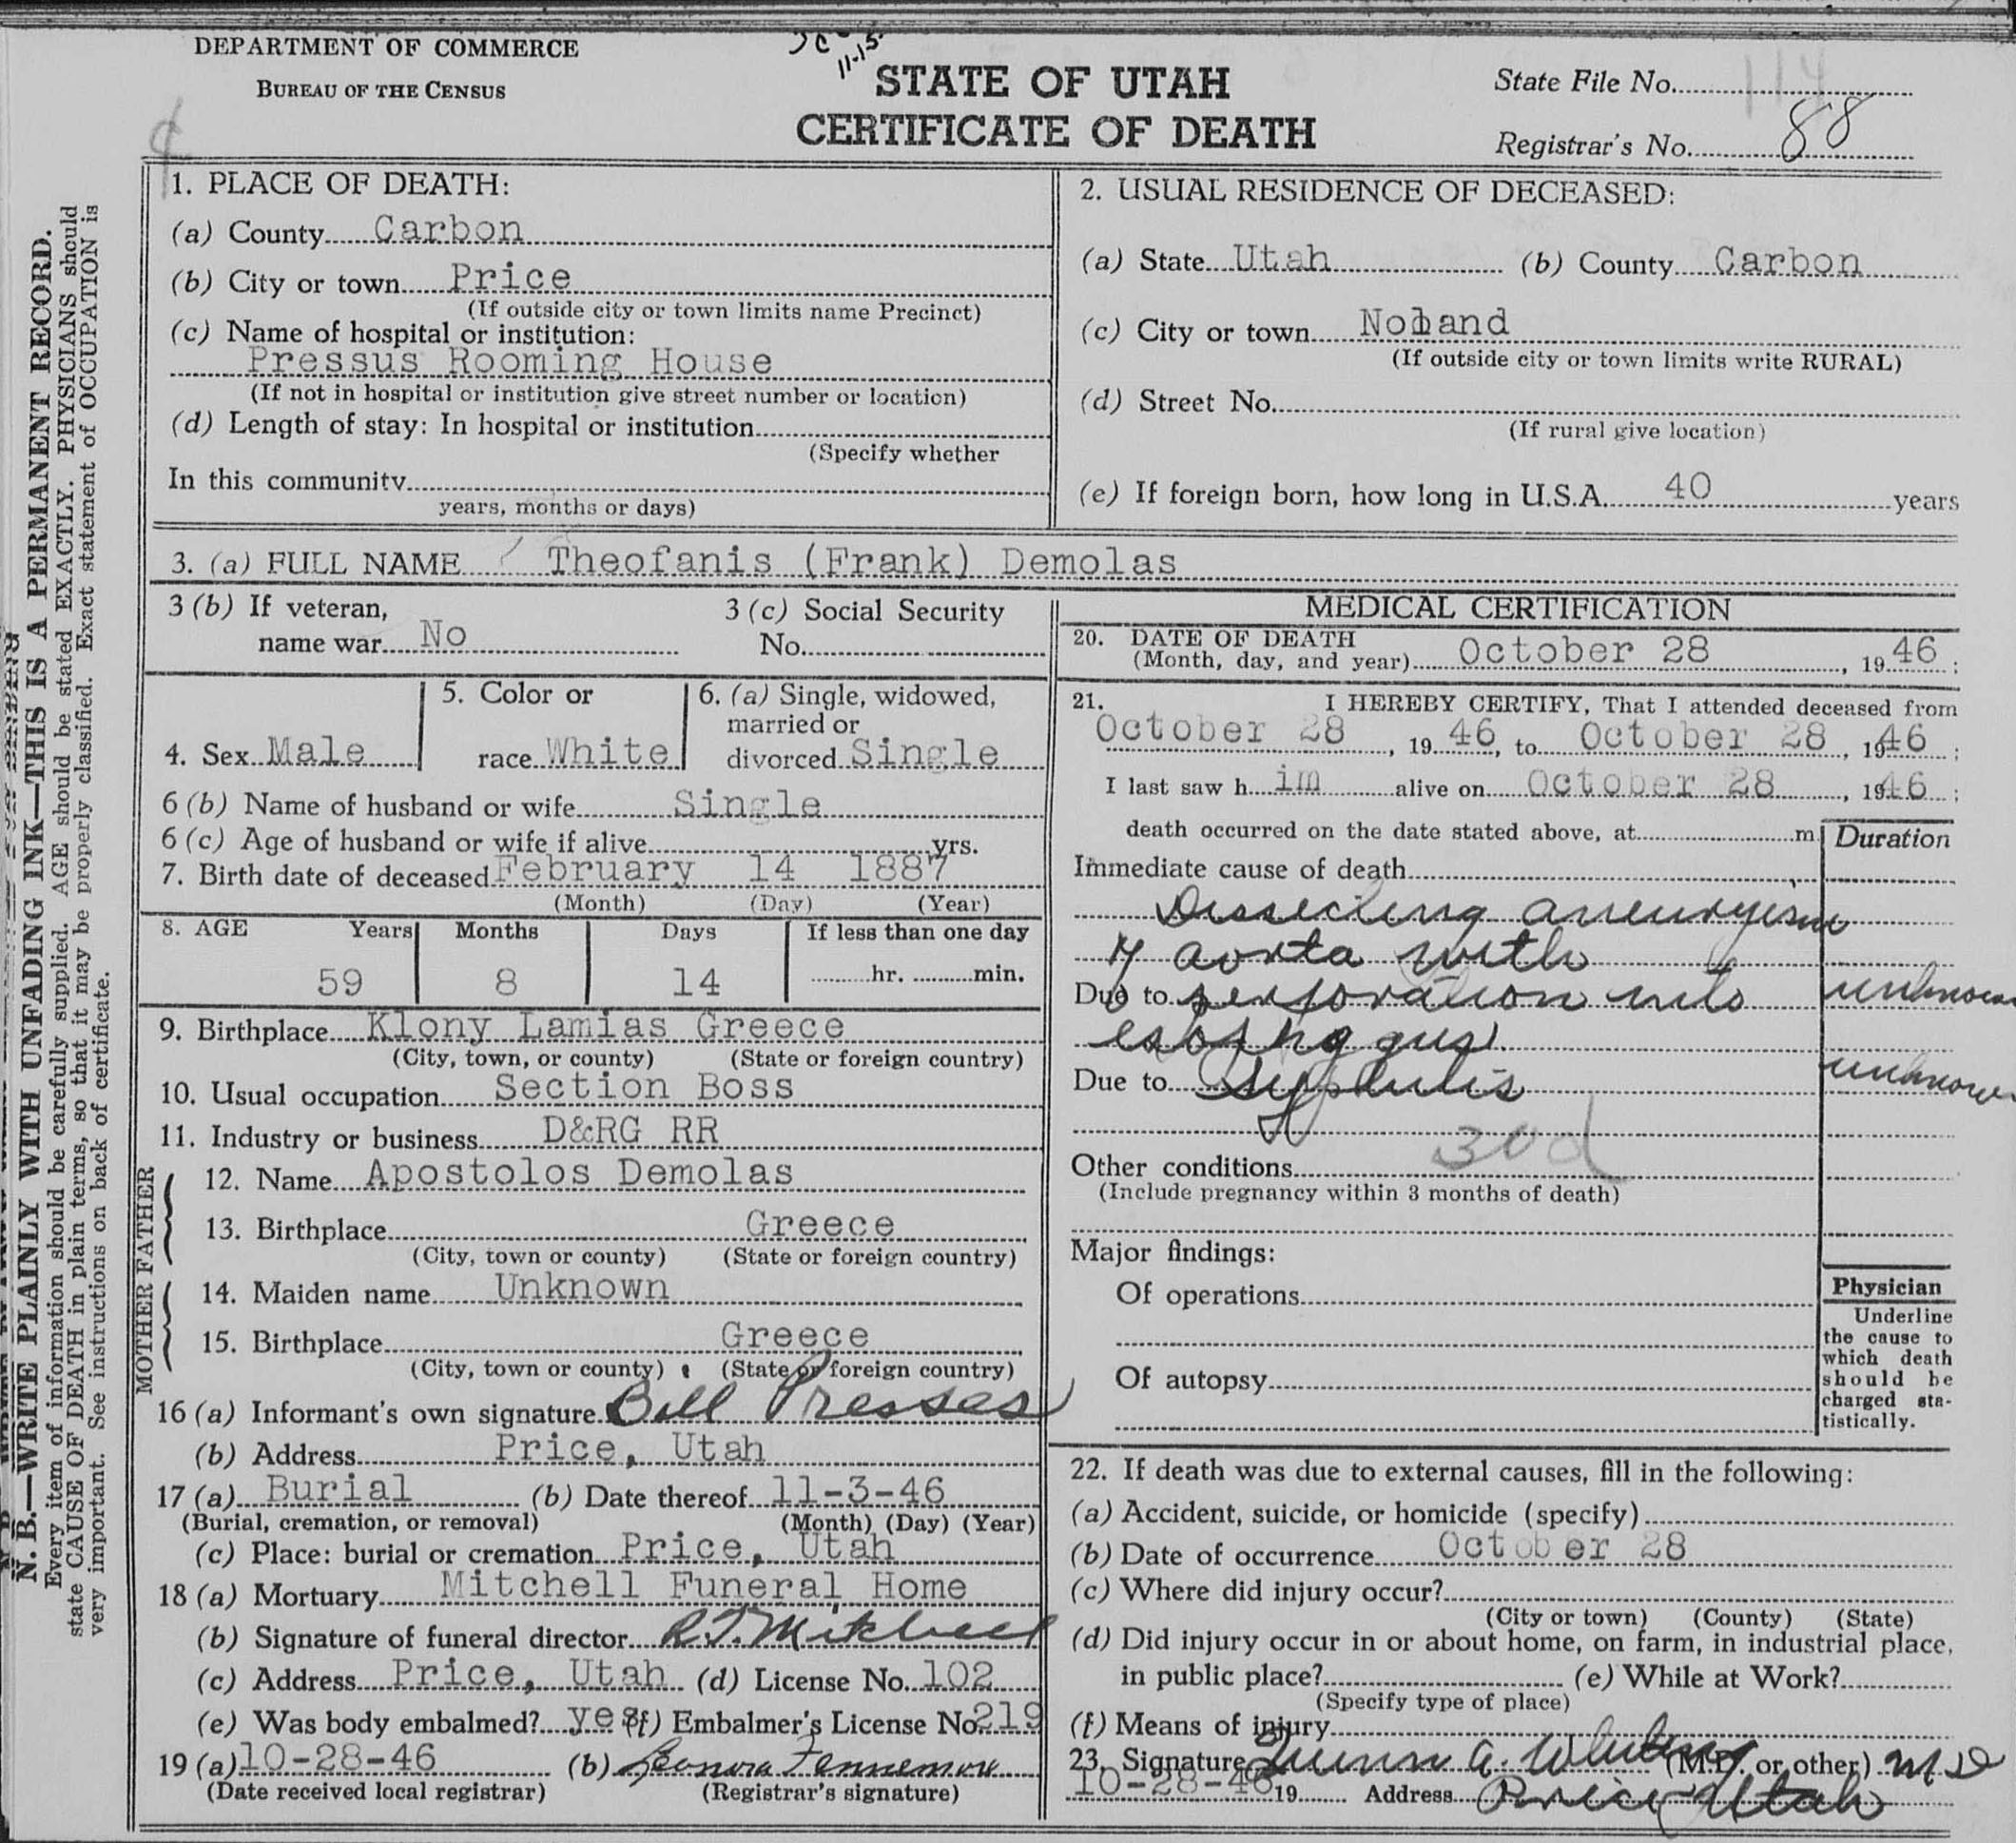 DEPARTMENT OF COMMERCE
BUREAU OF THE CENSUS
11-15
STATE OF UTAH
CERTIFICATE OF DEATH
State File No. 114
Registrar's No. 88
N. B.—WRITE PLAINLY WITH UNFADING INK—THIS IS A PERMANENT RECORD.
Every item of information should be carefully supplied. AGE should be stated EXACTLY. PHYSICIANS should
state CAUSE OF DEATH in plain terms, so that it may be properly classified. Exact statement of OCCUPATION is
very important. See instructions on back of certificate.
1. PLACE OF DEATH:
(a) County Carbon
(b) City or town Price
(If outside city or town limits name Precinct)
(c) Name of hospital or institution:
Pressus Rooming House
(If not in hospital or institution give street number or location)
(d) Length of stay: In hospital or institution
(Specify whether
In this community
years, months or days)
2. USUAL RESIDENCE OF DECEASED:
(a) State Utah (b) County Carbon
(c) City or town
(If outside city or town limits write RURAL)
(d) Street No.
(If rural give location)
(e) If foreign born, how long in U.S.A. 40 years
3. (a) FULL NAME Theofanis (Frank) Demolas
3 (b) If veteran,
name war No
3 (c) Social Security
No.
4. Sex Male
5. Color or
race White
6. (a) Single, widowed,
married or
divorced Single
6 (b) Name of husband or wife Single
6 (c) Age of husband or wife if alive yrs.
7. Birth date of deceased February 14 1887
(Month) (Day) (Year)
8. AGE Years Months Days If less than one day
59 8 14 hr. min.
9. Birthplace Klony Lamias Greece
(City, town, or county) (State or foreign country)
10. Usual occupation Section Boss
11. Industry or business D&RG RR
FATHER
12. Name Apostolos Demolas
13. Birthplace Greece
(City, town or county) (State or foreign country)
MOTHER
14. Maiden name Unknown
15. Birthplace Greece
(City, town or county) (State or foreign country)
16 (a) Informant's own signature Bill Presses
(b) Address Price, Utah
17 (a) Burial (b) Date thereof 11-3-46
(Burial, cremation, or removal) (Month) (Day) (Year)
(c) Place: burial or cremation Price, Utah
18 (a) Mortuary Mitchell Funeral Home
(b) Signature of funeral director R.T. Mitchell
(c) Address Price, Utah (d) License No. 102
(e) Was body embalmed? yes (f) Embalmer's License No. 219
19 (a) 10-28-46 (b) Leonora Fennemore
(Date received local registrar) (Registrar's signature)
MEDICAL CERTIFICATION
20. DATE OF DEATH
(Month, day, and year) October 28, 1946;
21. I HEREBY CERTIFY, That I attended deceased from
October 28, 19 46, to October 28, 1946;
I last saw h im alive on October 28, 1946;
death occurred on the date stated above, at m
Duration
Immediate cause of death
Dissecting aneurysm
of aorta with
Due to perforation into unknown
esophagus
Due to Syphilis unknown
30d
Other conditions
(Include pregnancy within 3 months of death)
Major findings:
Of operations
Of autopsy
Physician
Underline
the cause to
which death
should be
charged sta-
tistically.
22. If death was due to external causes, fill in the following:
(a) Accident, suicide, or homicide (specify)
(b) Date of occurrence October 28
(c) Where did injury occur?
(City or town) (County) (State)
(d) Did injury occur in or about home, on farm, in industrial place,
in public place? (e) While at Work?
(Specify type of place)
(f) Means of injury
23. Signature Quinn A. Whiting (M.D. or other) MD
10-28-46 19 Address Price Utah